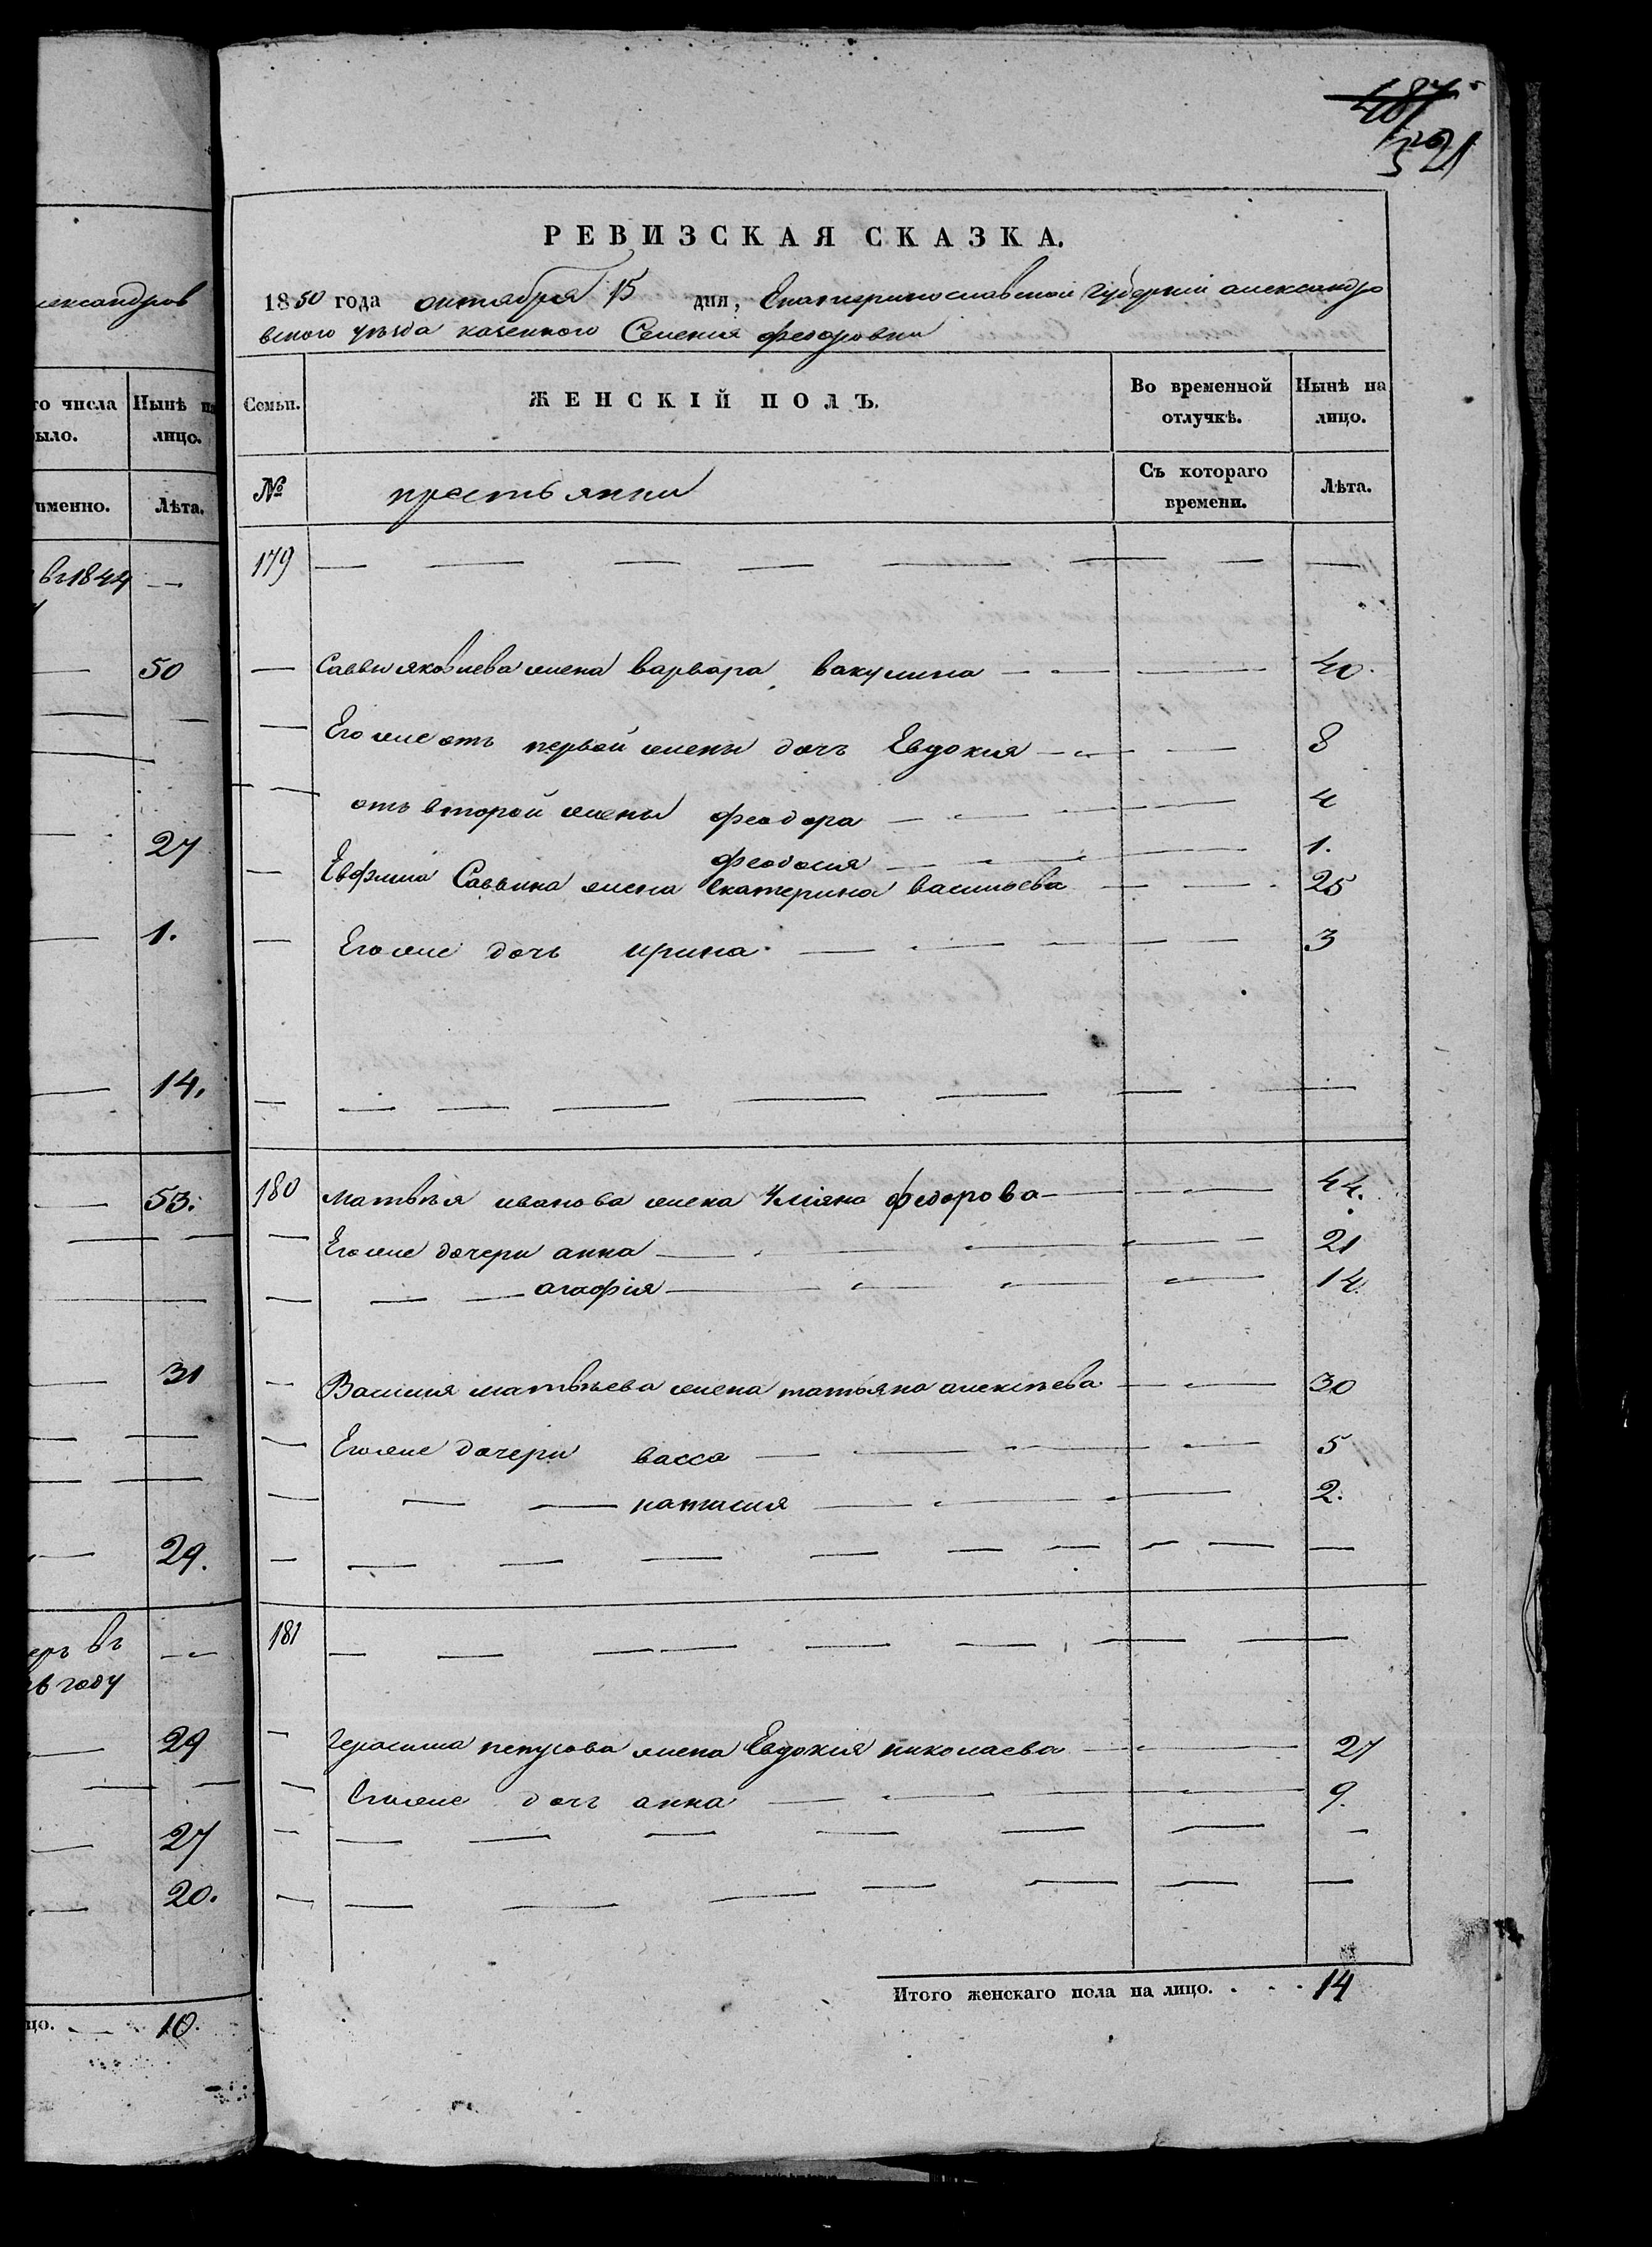 лександров
го числа Нынѣ на
ыло. лицо.
именно. Лѣта.
въ 1844 —
50
27
1.
14.
53.
31
29.
еръ въ —
въ году
29
27
20.
цо. 10.
487
521
РЕВИЗСКАЯ СКАЗКА.
1850 года октября 15 дня, Екатеринославской губерніи александро
вского уѣзда казенного Селенія федоровки
Семьи. ЖЕНСКІЙ ПОЛЪ. Во временной отлучкѣ. Нынѣ на лицо.
№ крестьянки Съ котораго времени. Лѣта.
179 — — — — — — — —
— Саввы яковлева жена варвара вакулина — — — 40.
— Его же отъ первой жены дочь Евдокия — — — 8
— отъ второй жены феодора — — — 4
феодосия — — — 1.
— Евфима Саввина жена Екатерина васильева — — 25
— Его же дочь ирина — — — 3
— — — — — — — —
180 матвѣя иванова жена Уліяна федорова — — 44.
— Его же дочери анна — — — 21
— — — агафія — — — 14.
— Василия матвѣева жена татьяна алексѣева — — 30
— Его же дочери васса — — — 5
— — — наталия — — — 2.
— — — — — — — —
181 — — — — — — — —
— Герасима жена Евдокия николаева — — 27
— Его же дочь анна — — — 9.
— — — — — — — —
— — — — — — — —
Итого женскаго пола на лицо. . . . 14